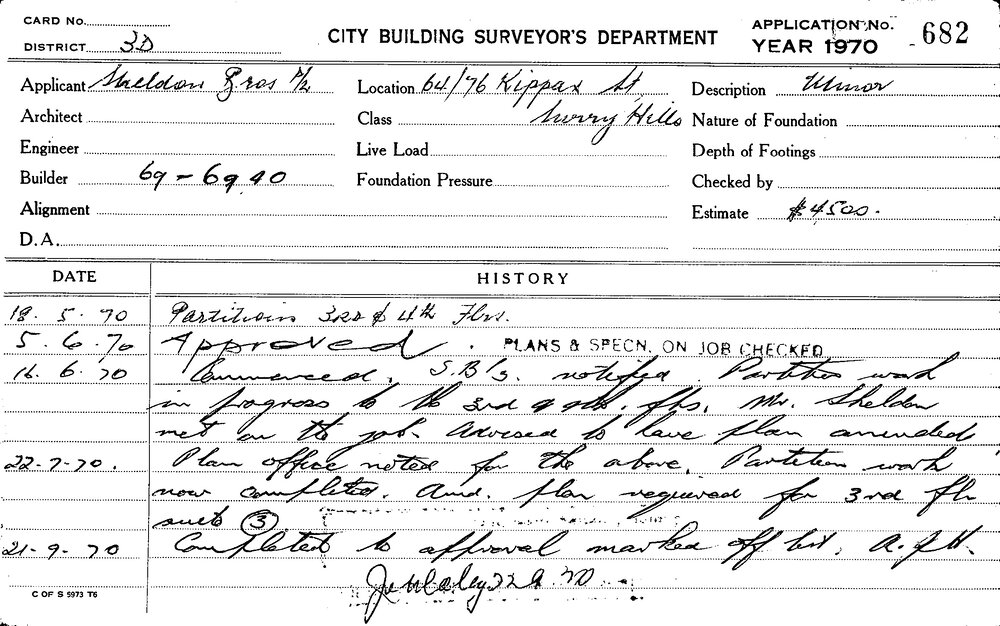 CARD No.
DISTRICT 3D
CITY BUILDING SURVEYOR'S DEPARTMENT
APPLICATION No. 682
YEAR 1970
Applicant Sheldon Bros P/L
Location 64/76 Kippax St,
Description Minor
Architect
Class Surry Hills
Nature of Foundation
Engineer
Live Load
Depth of Footings
Builder 69-69.40
Foundation Pressure
Checked by
Alignment
Estimate $4500.
D.A.
DATE HISTORY
18.5.70 Partitions 3rd & 4th Flrs.
5.6.70 Approved. PLANS & SPECN. ON JOB CHECKED
16.6.70 Commenced. S.B/s. notified Partition work
in progress to the 3rd & 4th. flrs. Mr. Sheldon
met on the job. Advised to have plan amended
22-7-70. Plan office noted for the above. Partition work
now completed. Amd. plan required for 3rd flr
3
21-9-70 Completed to approval marked off list. A.J.H.
70
C OF S 5973 T6